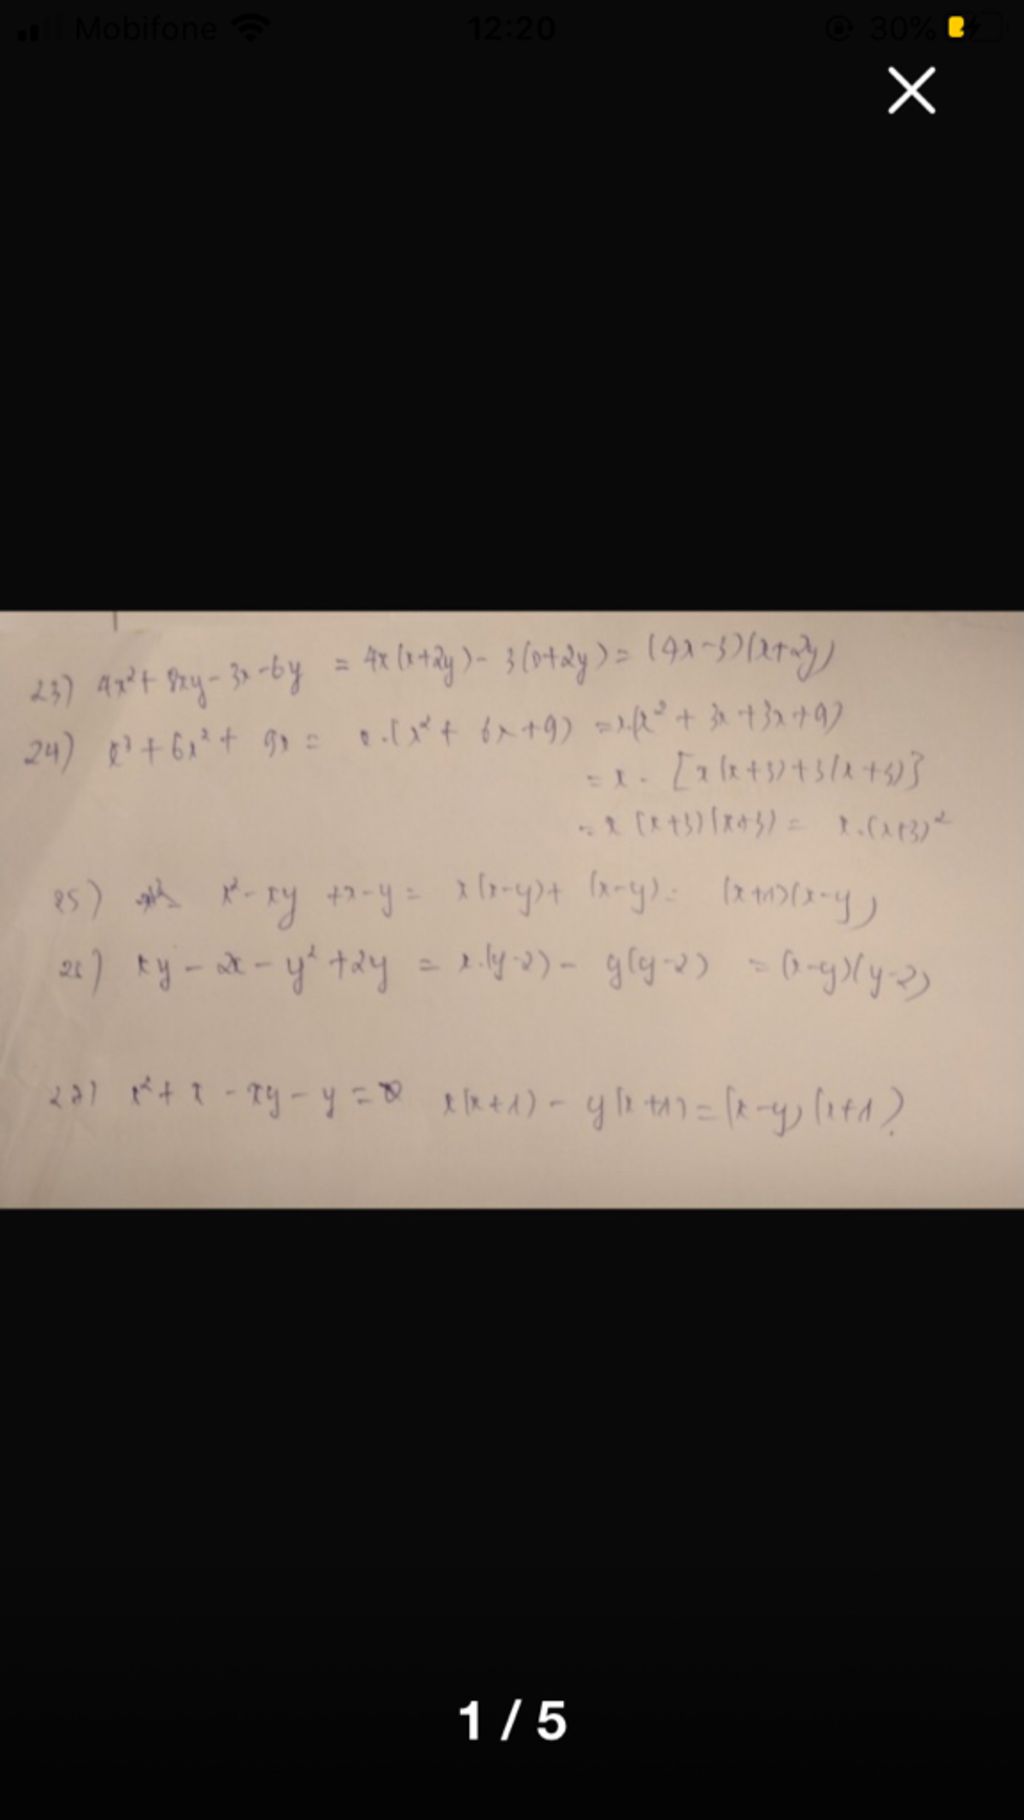 Mobifone 12:20 30%
23) 4x²+ 8xy - 3x - 6y = 4x(x+2y) - 3(x+2y) = (4x-3)(x+2y)
24) x³ + 6x² + 9x = x.(x² + 6x + 9) = x.(x² + 3x + 3x + 9)
= x. [x(x+3)+3(x+3)]
= x (x+3)(x+3) = x.(x+3)²
25) x² - xy + x - y = x(x-y)+ (x-y) = (x+1)(x-y)
26) xy - 2x - y² + 2y = x.(y-2) - y(y-2) = (x-y)(y-2)
27) x² + x - xy - y = x(x+1) - y(x+1) = (x-y)(x+1)
1 / 5